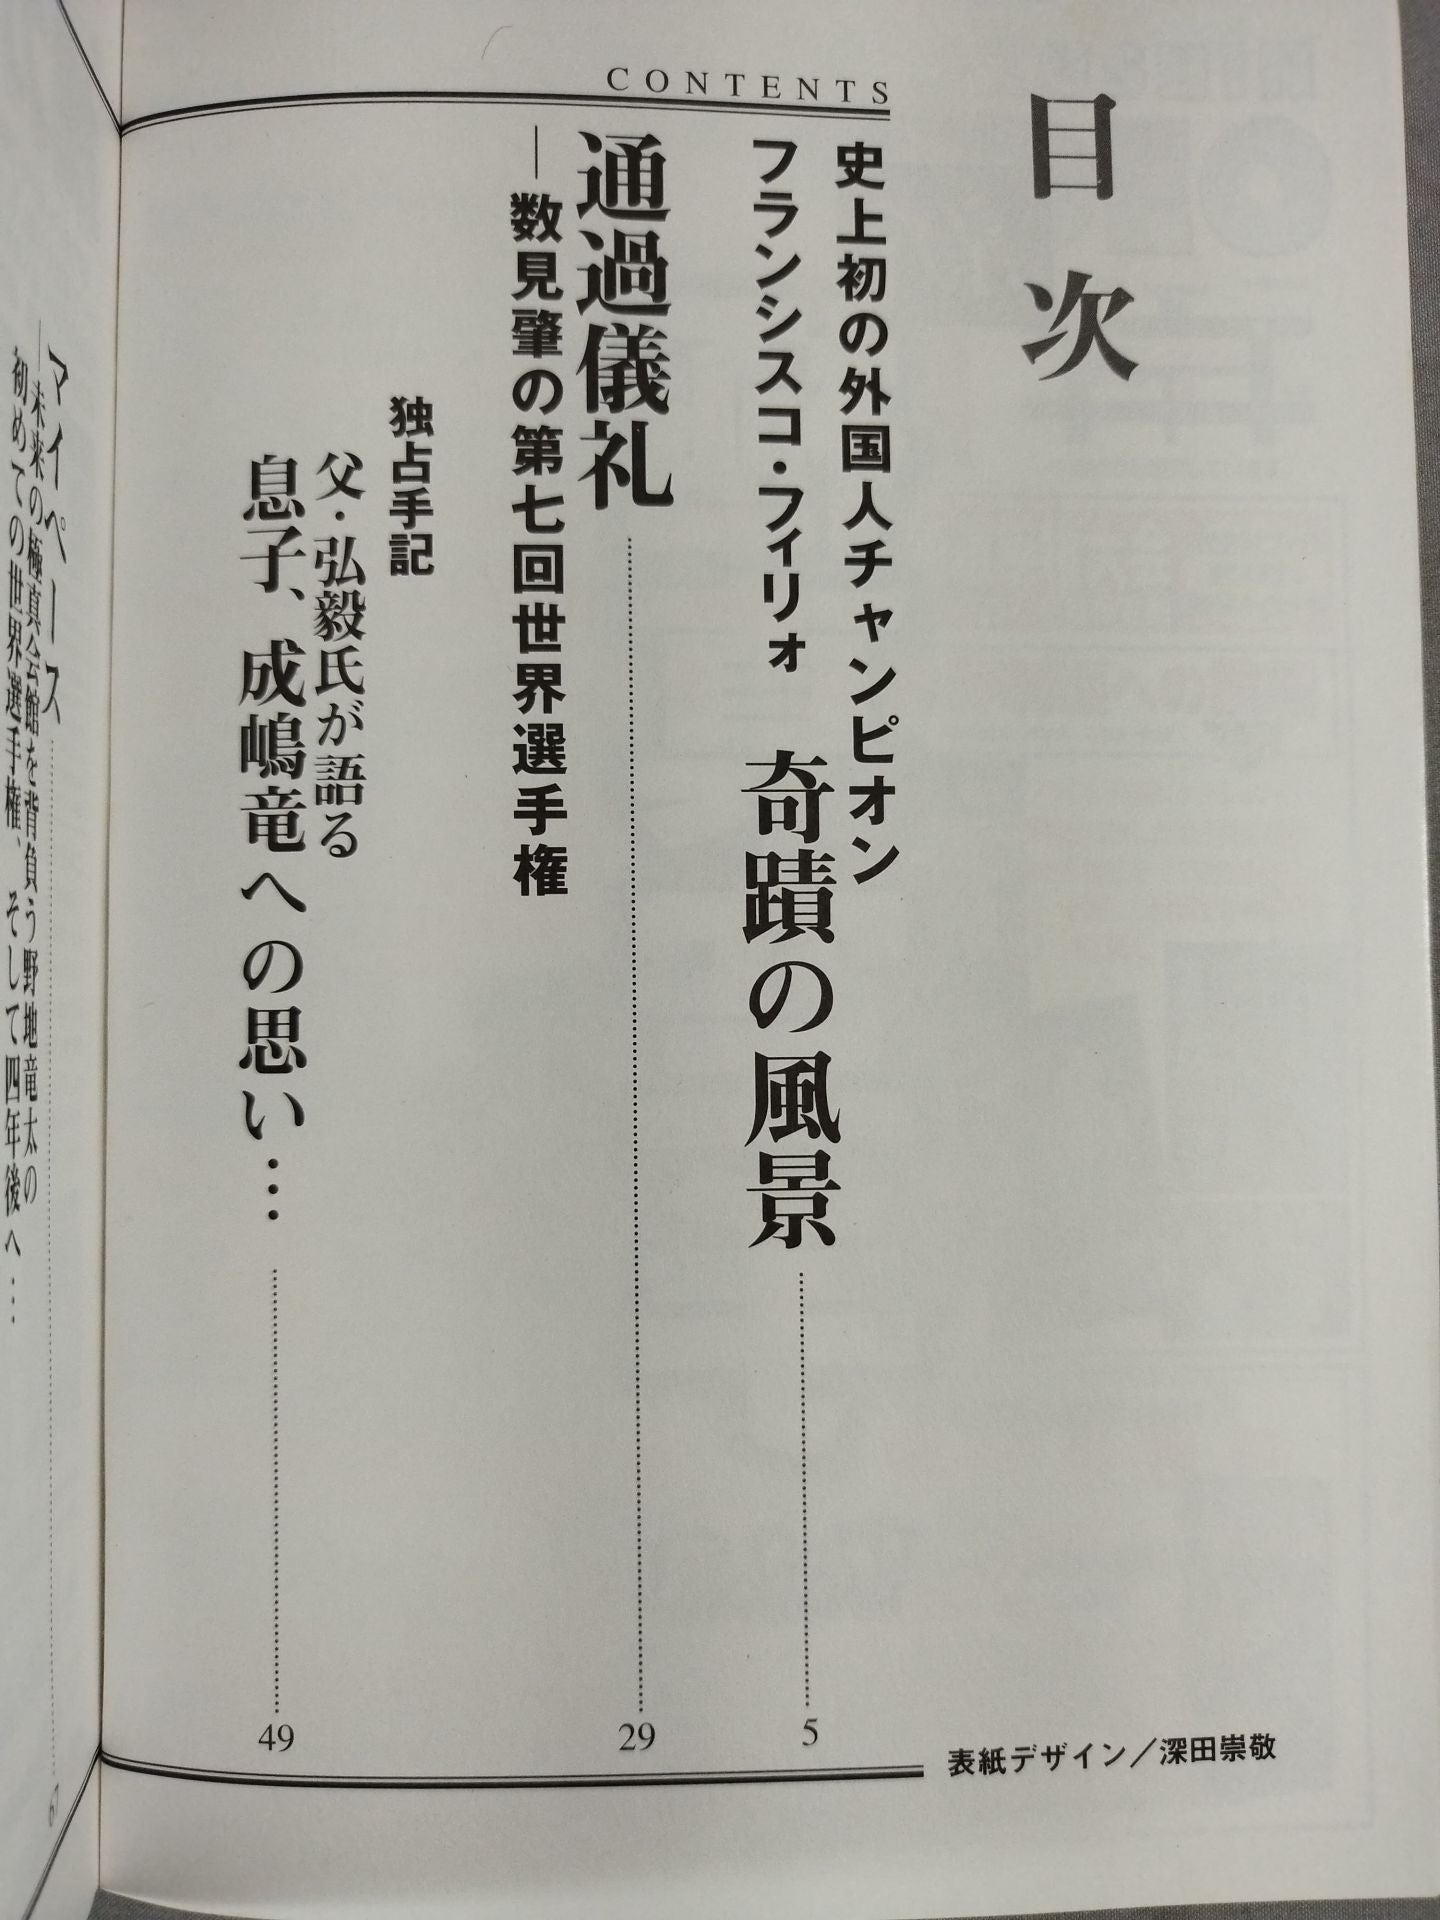 目次
CONTENTS
史上初の外国人チャンピオン
フランシスコ・フィリォ 奇蹟の風景
5
通過儀礼
29
―数見肇の第七回世界選手権
独占手記
父・弘毅氏が語る
息子、成嶋竜への思い…
49
マイペース
67
―未来の極真会館を背負う野地竜太の
初めての世界選手権、そして四年後へ…
表紙デザイン／深田崇敬